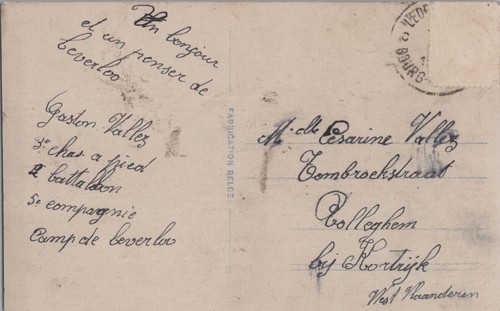 Un bonjour
et un penser de
beverloo
Gaston Vallez
3e chas a pied
2 battallon
5e compagnie
Camp de beverloo
FABRICATION BELGE
BOURG
Mlle Césarine Vallez
Tombroekstraat
Rolleghem
bij Kortrijk
West Vlaanderen